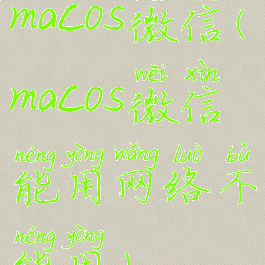 macos微信(
wēi xìn
macos微信
néng yòng wǎng luò bù
能用网络不
néng yòng
能用)